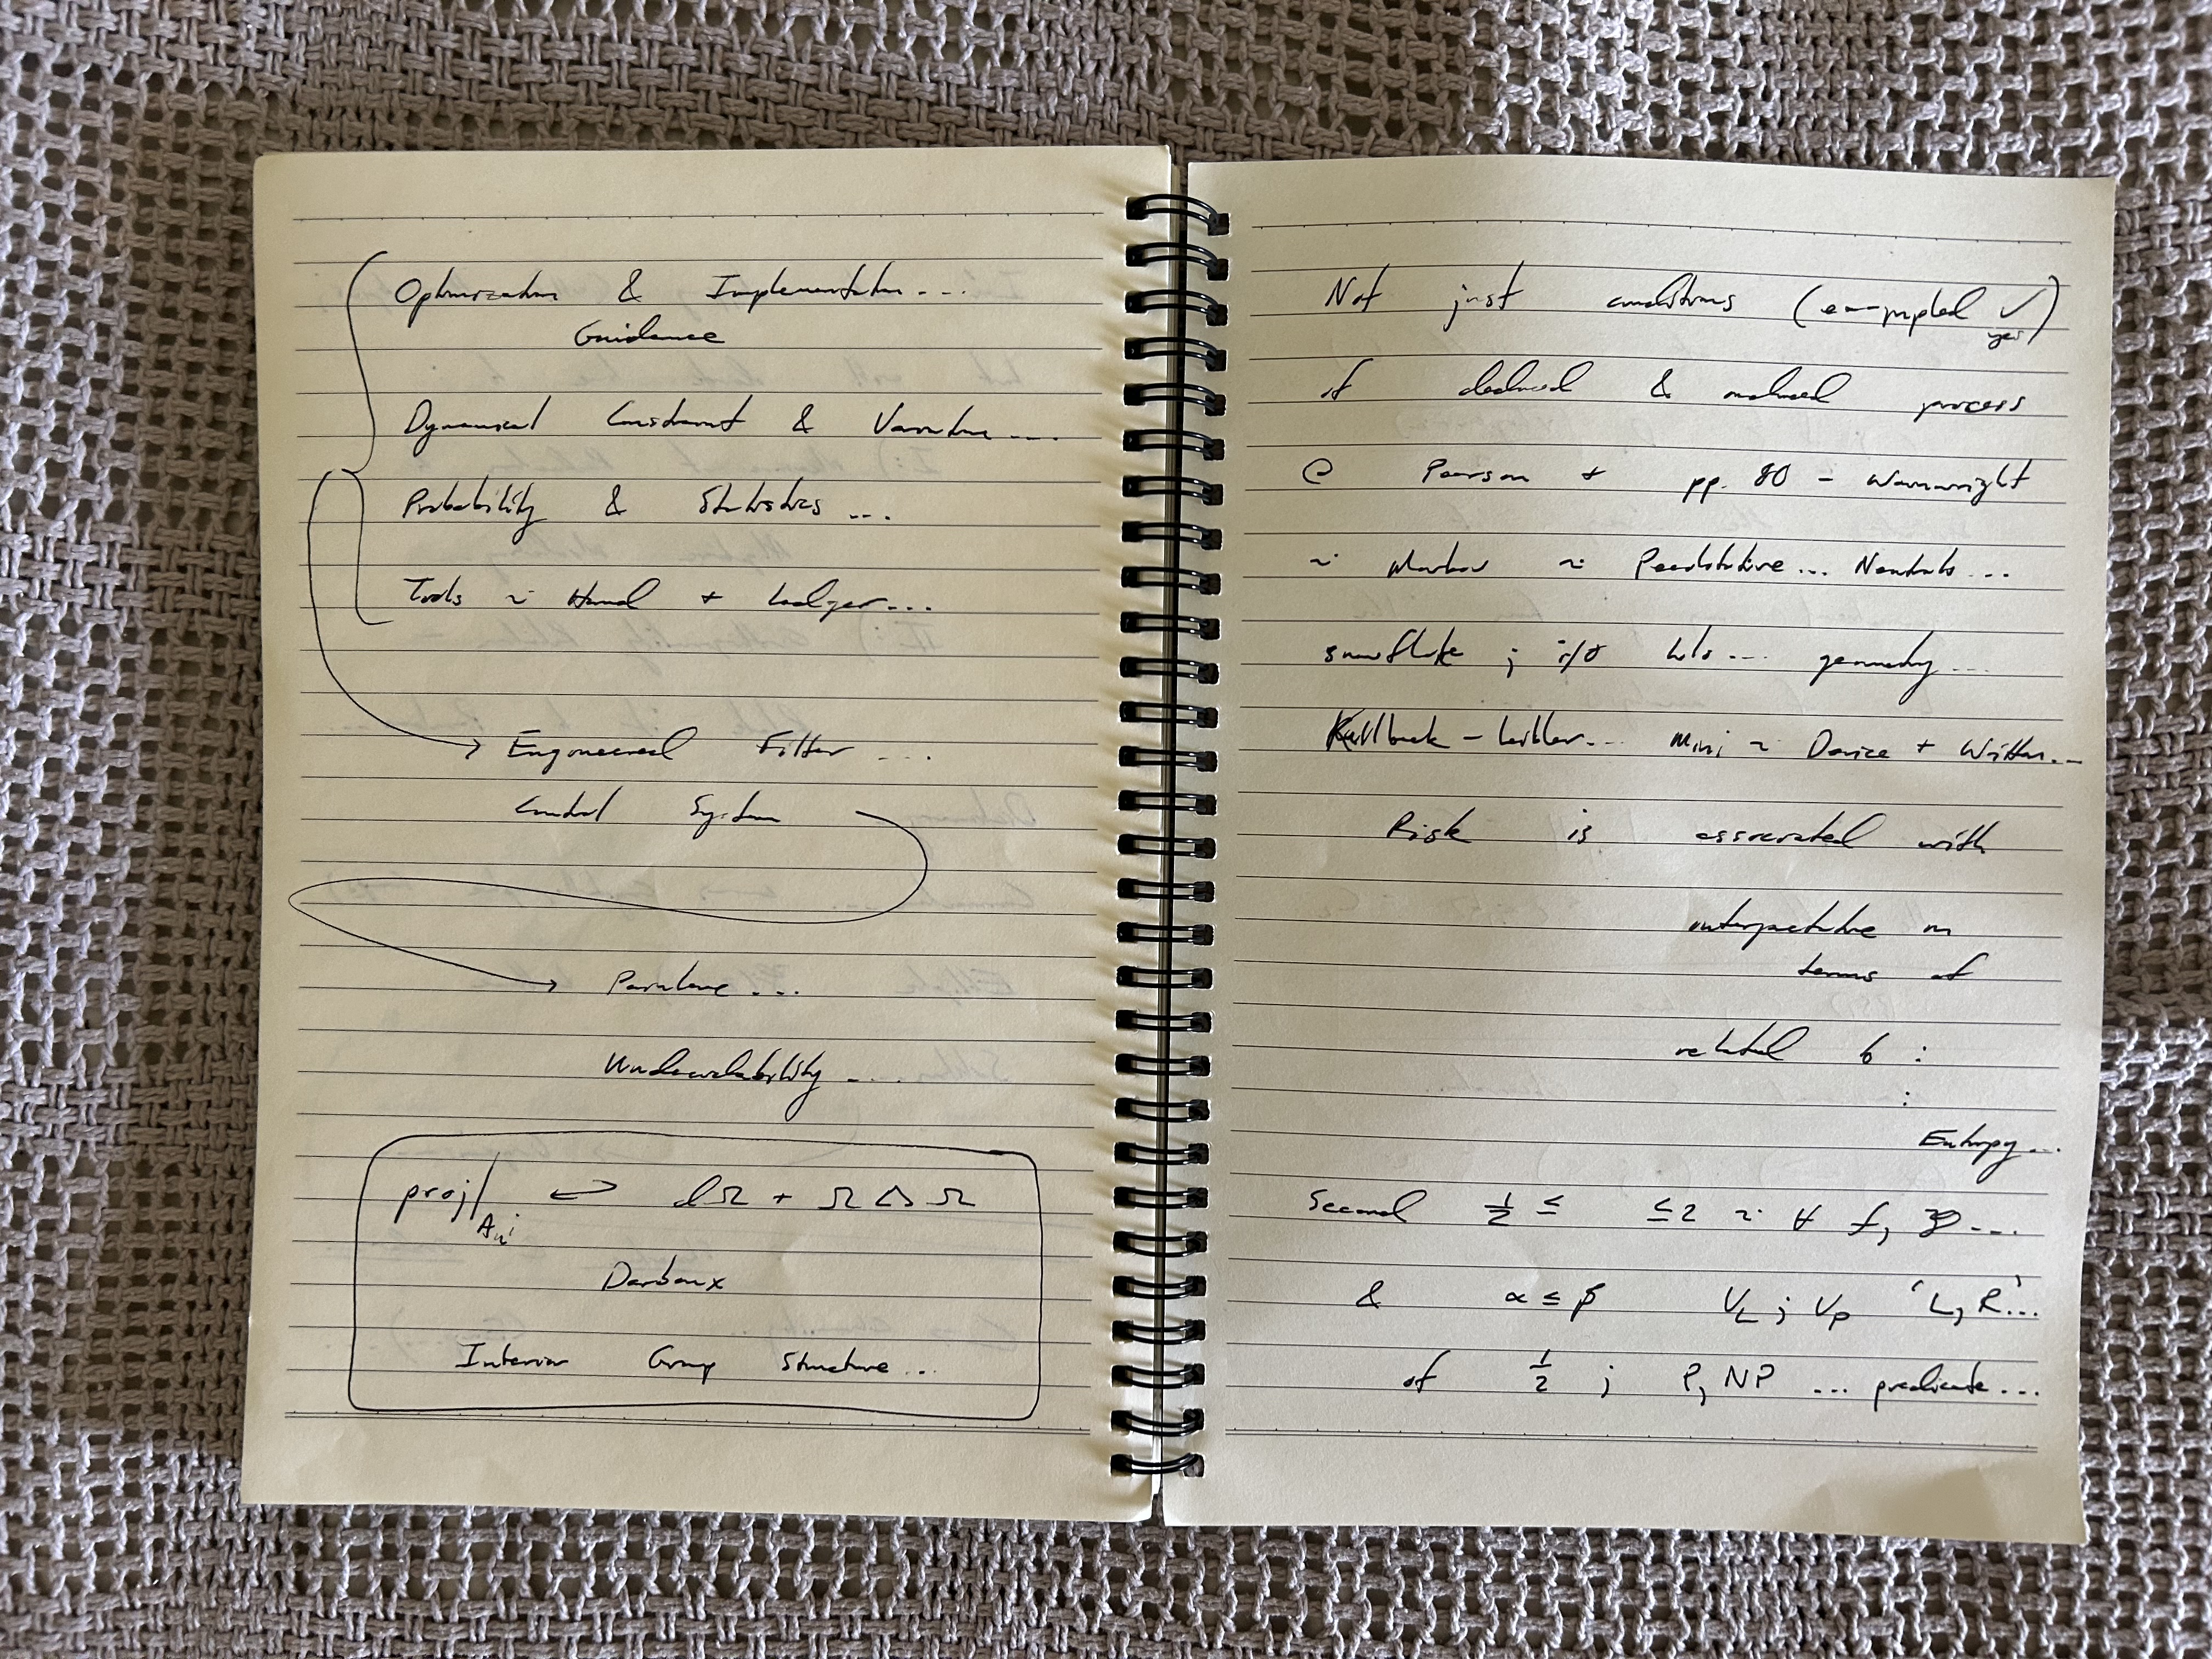 Optimization & Implementation...
Guidance
Dynamical Constraint & Variation....
Probability & Statistics...
Tools ~ Hand + Ledger...
Engineered Filter....
Control System
Undecidability....
proj| ↔ dΩ + Ω ∧ Ω
Darboux
Interior Group Structure...
Not just conditions ( ✓ )
yes
of deduced & induced process
@ Pearson + pp. 80 - Wainwright
~ Markov ~ ...
snowflake ; i/o ... geometry...
Kullback-Leibler... mini ~ Device + Written...
Risk is associated with
interpretative in
terms of
related to :
:
Entropy...
Second 1/2 ≤ ≤ 2 ~ ∀ f, ...
& α ≤ β V_L ; V_P 'L, R'...
of 1/2 ; P, NP ... predicate...